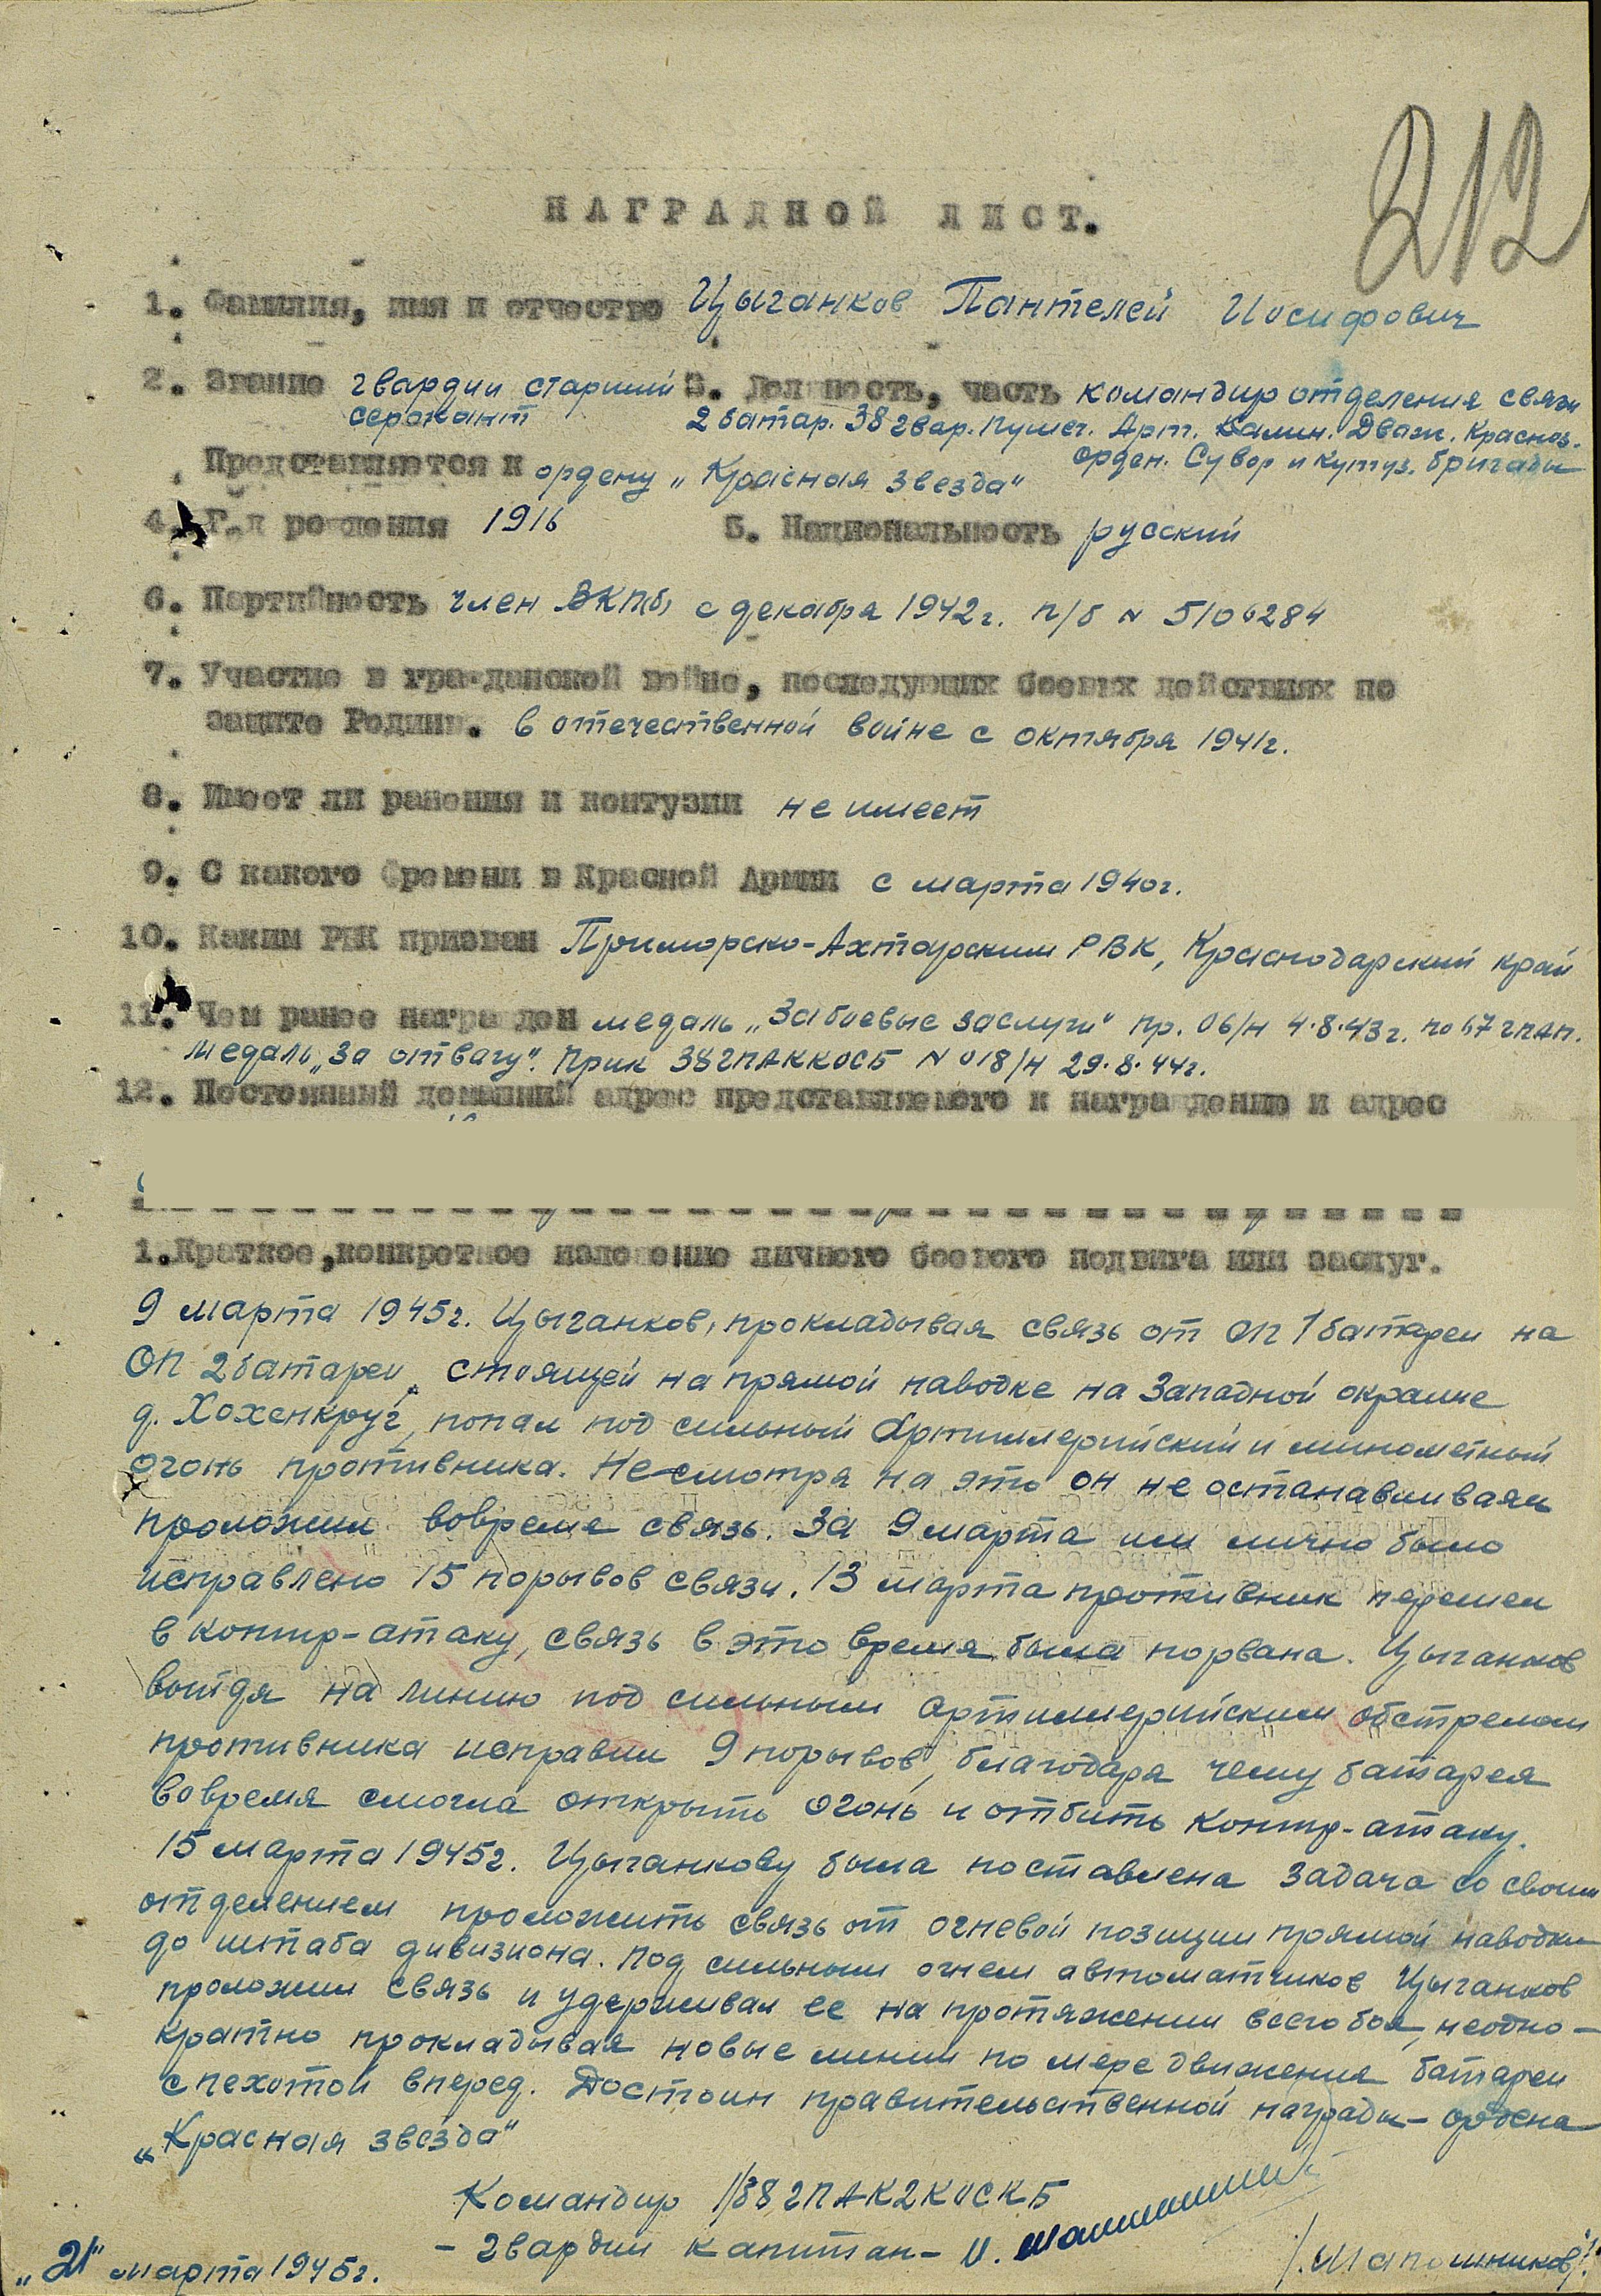 212
НАГРАДНОЙ ЛИСТ.
1. Фамилия, имя и отчество Цыганков Пантелей Иосифович
2. Звание гвардии старший сержант
3. Должность, часть командир отделения связи
2 батар. 38 гвар. пушеч. Арт. Калин. Дваж. Красноз. орден. Сувор и Кутуз. бригады
Представляется к ордену „Красная звезда"
4. Год рождения 1916 5. Национальность русский
6. Партийность член ВКП(б) с декабря 1942г. п/б № 5106284
7. Участие в гражданской войне, последующих боевых действиях по
защите Родины. в отечественной войне с октября 1941г.
8. Имеет ли ранения и контузии не имеет
9. С какого времени в Красной Армии с марта 1940г.
10. Каким РВК призван Приморско-Ахтарским РВК, Краснодарский край
11. Чем ранее награжден медаль „За боевые заслуги" пр. 06/н 4.8.43г. по 67 гпап.
медаль „За отвагу". Прик 38ГПАККОСБ № 018/н 29.8.44г.
12. Постоянный домашний адрес представляемого к награждению и адрес
1.Краткое,конкретное изложение личного боевого подвига или заслуг.
9 марта 1945г. Цыганков, прокладывая связь от ОП 1 батареи на
ОП 2 батареи, стоящей на прямой наводке на Западной окраине
д. Хохенкруг, попал под сильный артиллерийский и минометный
огонь противника. Несмотря на это он не останавливаясь
проложил вовремя связь. За 9 марта им лично было
исправлено 15 порывов связи. 13 марта противник перешел
в контр-атаку, связь в это время была порвана. Цыганков
выйдя на линию под сильным артиллерийским обстрелом
противника исправил 9 порывов, благодаря чему батарея
вовремя смогла открыть огонь и отбить контр-атаку.
15 марта 1945г. Цыганкову была поставлена задача со своим
отделением проложить связь от огневой позиции прямой наводки
до штаба дивизиона. Под сильным огнем автоматчиков Цыганков
проложил связь и удерживал ее на протяжении всего боя, неодно-
кратно прокладывая новые линии по мере движения батареи
с пехотой вперед. Достоин правительственной награды - ордена
„Красная звезда"
Командир 1/38 ГПАК2КОСКБ
- гвардии капитан - И.
/Шапошников/.
„21" марта 1945г.